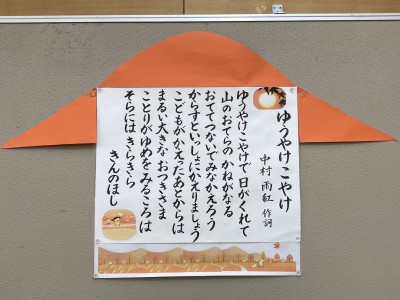 ゆうやけこやけ
中村 雨紅 作詞
ゆうやけこやけで 日がくれて
山のおてらの かねがなる
おててつないでみなかえろう
からすといっしょにかえりましょう
こどもがかえったあとからは
まるい大きな おつきさま
ことりがゆめをみるころは
そらには きらきら
きんのほし